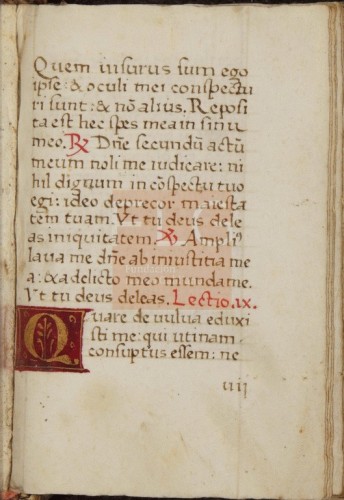 Quem uisurus sum ego
ipse: & oculi mei conspectu
ri sunt: & nõ alius. Reposi
ta est hec spes mea in sinu
meo. ℟ Dñe secundũ actũ
meum noli me iudicare: ni
hil dignum in cõspectu tuo
egi: ideo deprecor maiesta
tem tuam. Vt tu deus dele
as iniquitatem. ℣ Ampli᷒
laua me dñe ab iniustitia me
a: & a delicto meo munda me.
Vt tu deus deleas. Lectio .ix.
Quare de uulua eduxi
sti me: qui utinam
consuptus essem: ne
Fundación